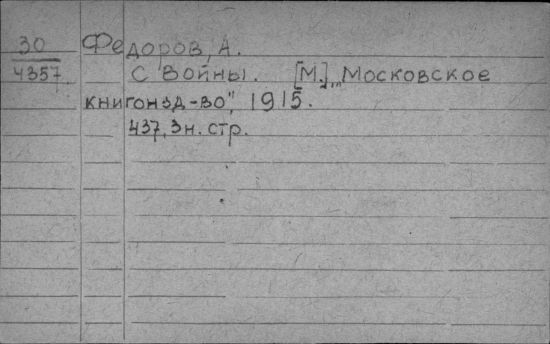 30 Федоров, А.
4357 С войны. [М.], "Московское
книгоизд-во", 1915.
437, 3 н. стр.